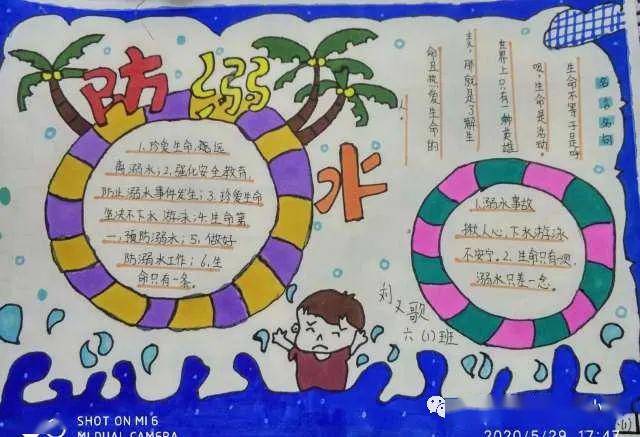 防溺水
1.珍爱生命,远
离溺水;2.强化安全教育,
防止溺水事件发生;3.珍爱生命
坚决不下水游泳;4.生命第
一,预防溺水;5.做好
防溺水工作;6.生
命只有一条。
名言名句
生命不等于是呼
吸,生命是活动。
世界上只有一种英雄
主义,那就是了解生
命且热爱生命的
人
1.溺水事故
揪人心,下水游泳
不安宁。2.生命只有一次,
溺水只差一念。
刘又歌
六(1)班
SHOT ON MI 6
MI DUAL CAMERA
2020/5/29 17:47